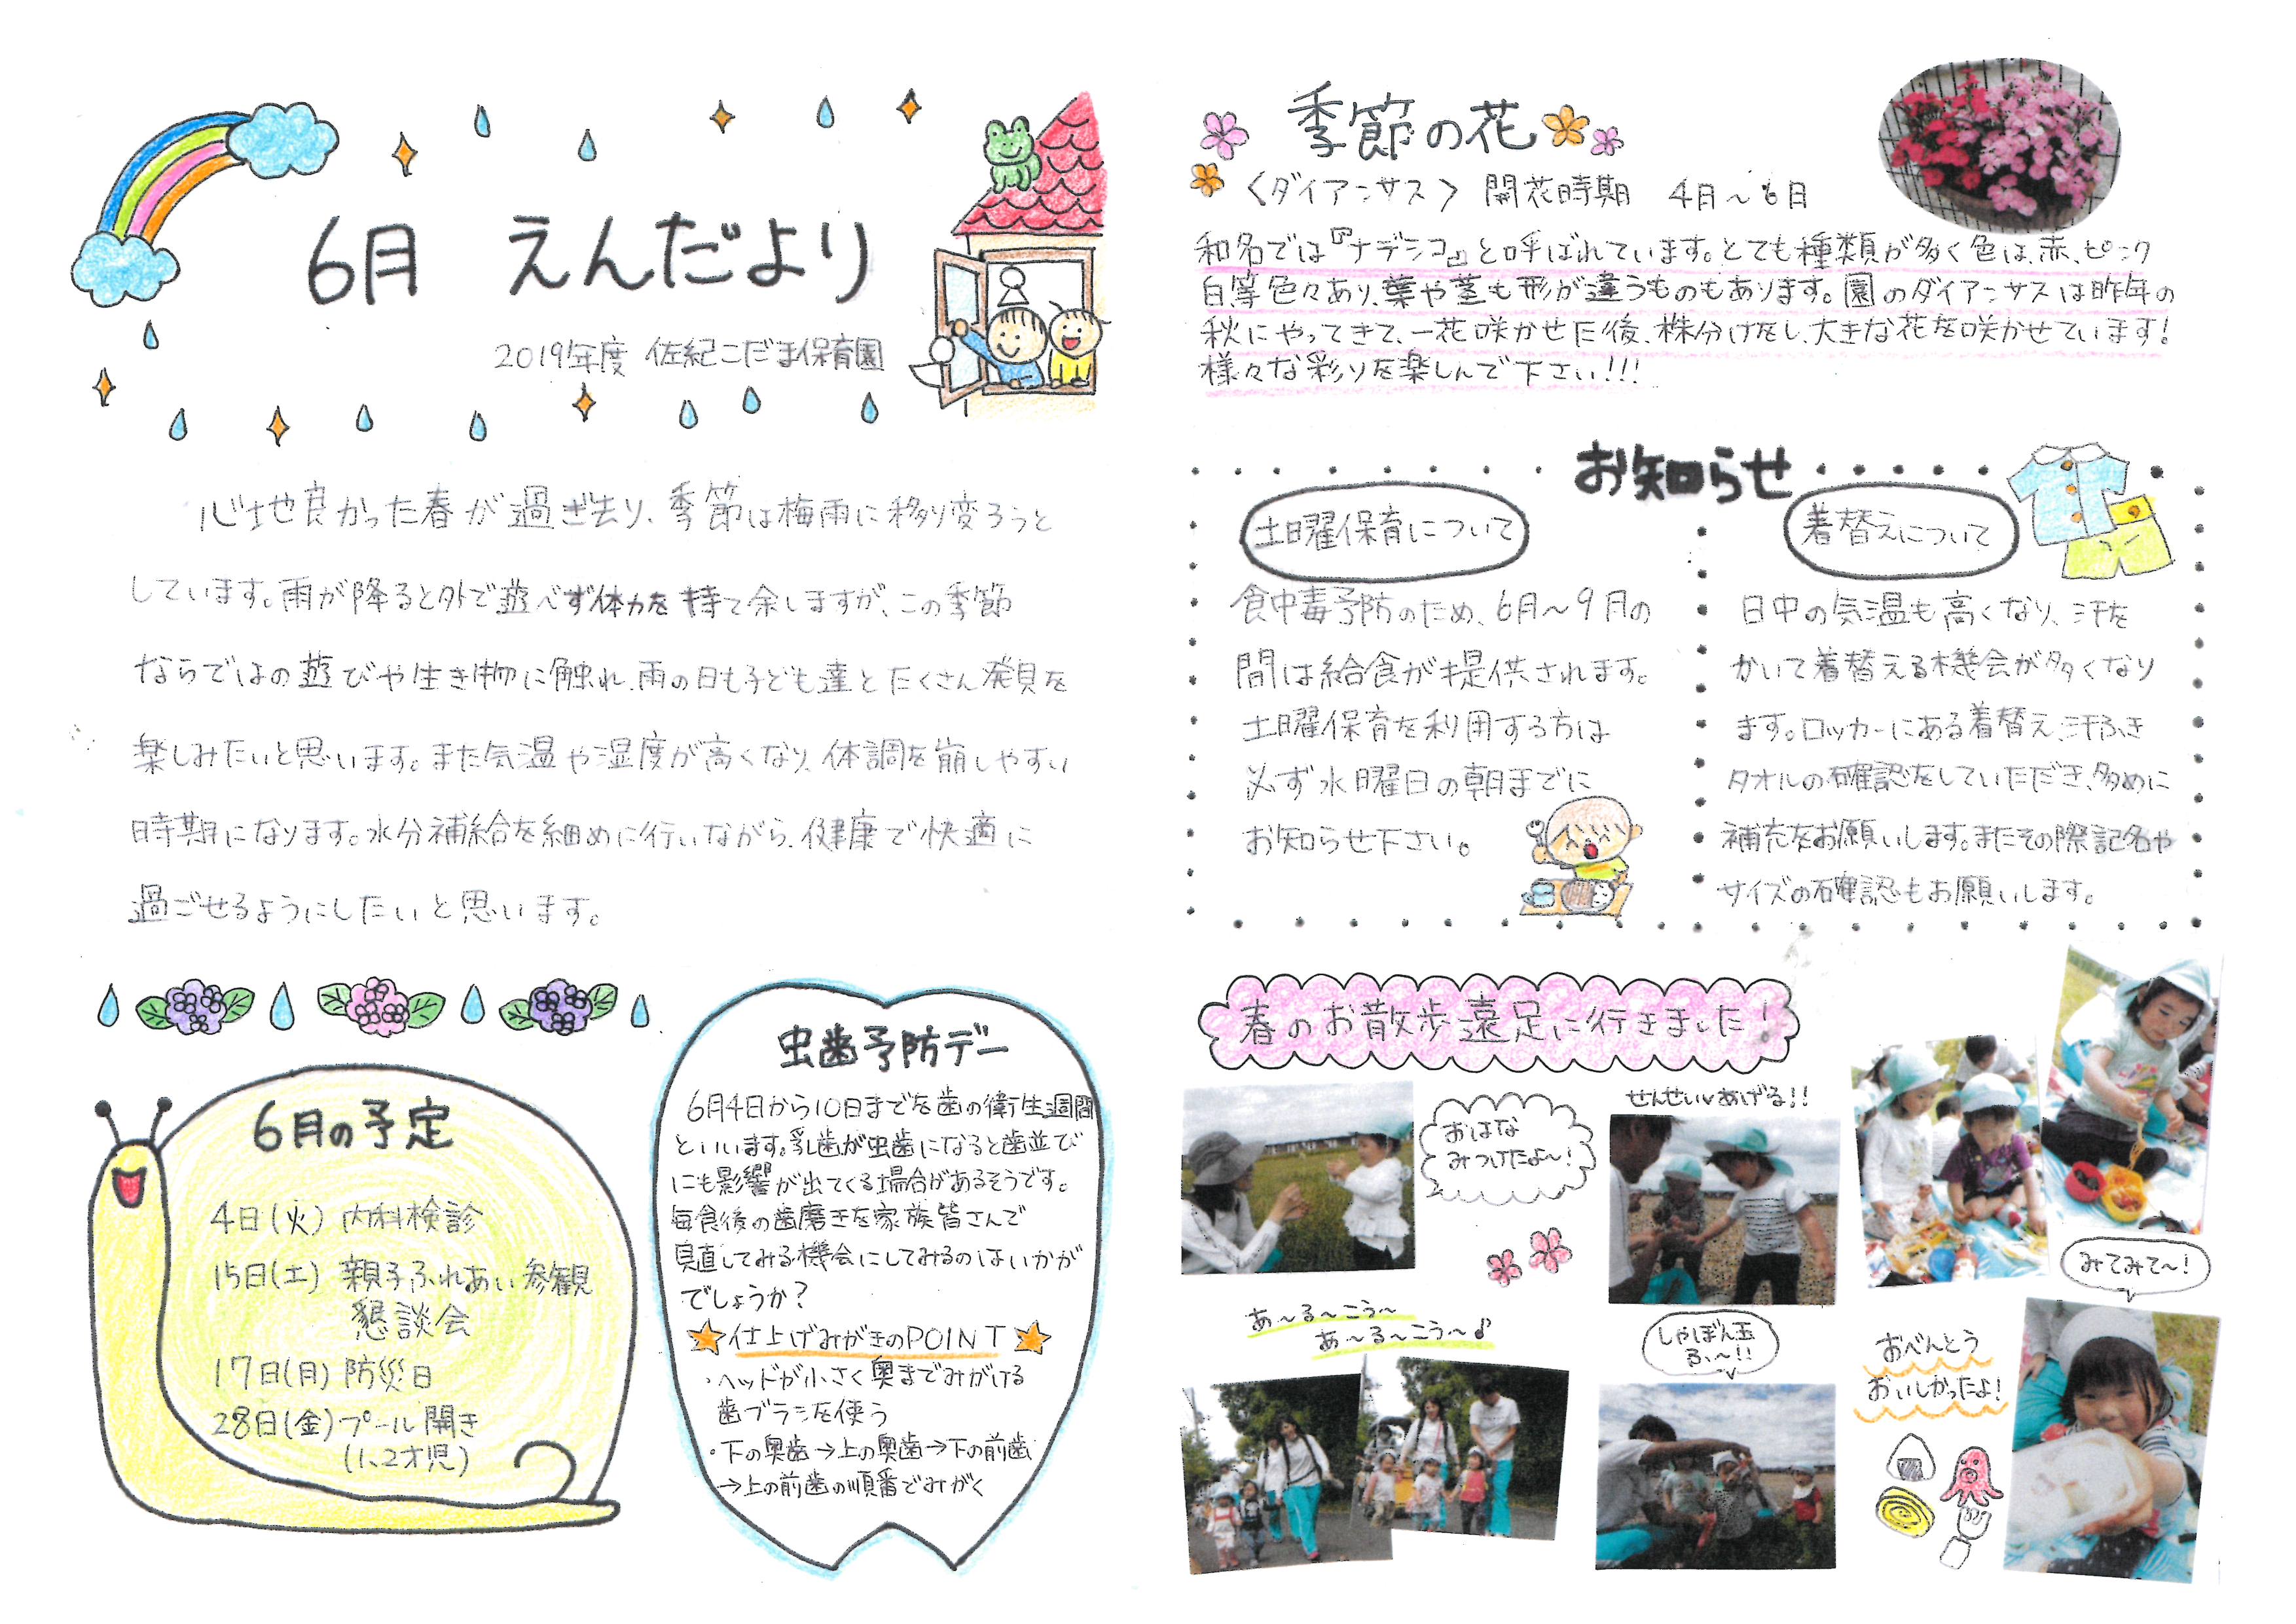 6月 えんだより
2019年度 佐紀こだま保育園
心地良かった春が過ぎ去り、季節は梅雨に移り変ろうと
しています。雨が降ると外で遊べず体力を持て余しますが、この季節
ならではの遊びや生き物に触れ、雨の日も子ども達とたくさん発見を
楽しみたいと思います。また気温や湿度が高くなり、体調を崩しやすい
時期になります。水分補給を細めに行いながら、健康で快適に
過ごせるようにしたいと思います。
6月の予定
4日(火) 内科検診
15日(土) 親子ふれあい参観
懇談会
17日(月) 防災日
28日(金) プール開き
(1、2才児)
虫歯予防デー
6月4日から10日までを歯の衛生週間
といいます。乳歯が虫歯になると歯並び
にも影響が出てくる場合があるそうです。
毎食後の歯磨きを家族皆さんで
見直してみる機会にしてみるのはいかが
でしょうか?
仕上げみがきのPOINT
・ヘッドが小さく奥までみがける
歯ブラシを使う
・下の奥歯→上の奥歯→下の前歯
→上の前歯の順番でみがく
季節の花
〈ダイアンサス〉 開花時期 4月〜6月
和名では『ナデシコ』と呼ばれています。とても種類が多く色は、赤、ピンク
白等色々あり、葉や茎も形が違うものもあります。園のダイアンサスは昨年の
秋にやってきて、一花咲かせた後、株分けをし、大きな花を咲かせています!
様々な彩りを楽しんで下さい!!!
お知らせ
土曜保育について
食中毒予防のため、6月〜9月の
間は給食が提供されます。
土曜保育を利用する方は
必ず水曜日の朝までに
お知らせ下さい。
着替えについて
日中の気温も高くなり、汗を
かいて着替える機会が多くなり
ます。ロッカーにある着替え、汗ふき
タオルの確認をしていただき、多めに
補充をお願いします。またその際記名や
サイズの確認もお願いします。
春のお散歩遠足に行きました!
おはな
みつけたよ〜!
せんせいあげる!!
みてみて〜!
あ〜る〜こう〜
あ〜る〜こう〜♪
しゃぼん玉
ふぅ〜!!
おべんとう
おいしかったよ!